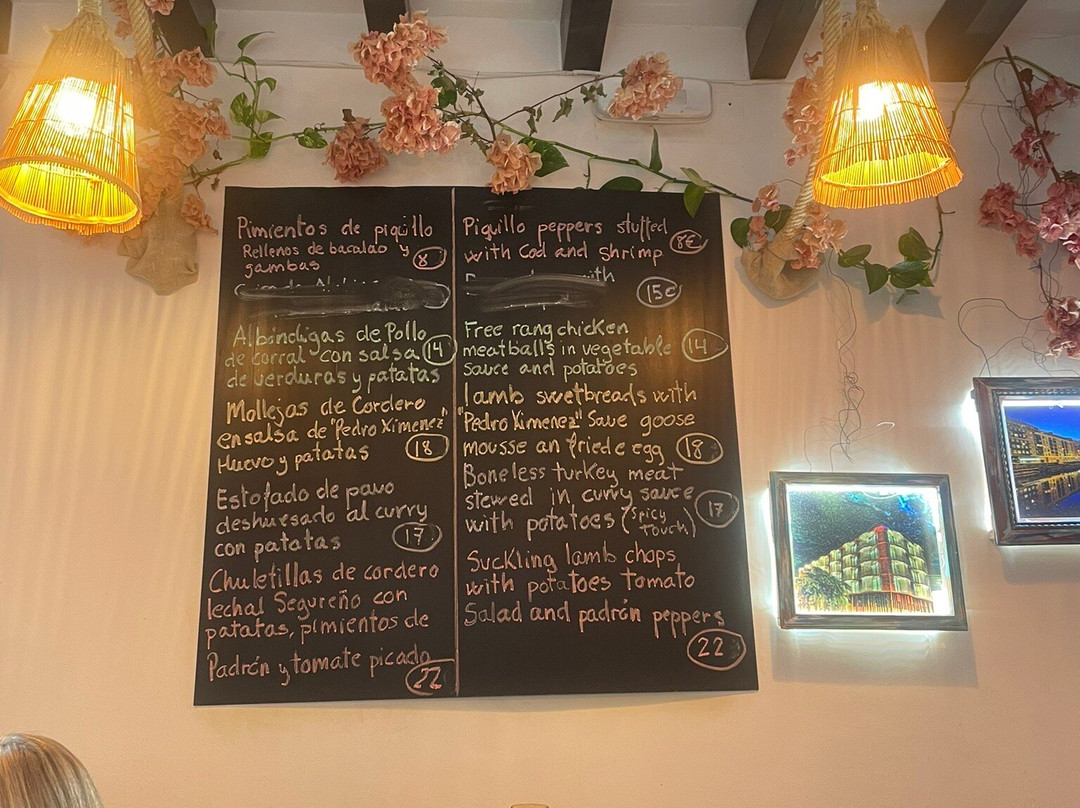 Pimientos de piquillo
Rellenos de bacalao y
gambas
8
Albóndigas de Pollo
de corral con salsa 14
de verduras y patatas
Mollejas de Cordero
en salsa de "Pedro Ximenez"
Huevo y patatas 18
Estofado de pavo
deshuesado al curry
con patatas 17
Chuletillas de cordero
lechal Segureño con
patatas, pimientos de
Padrón y tomate picado
22
Piquillo peppers stuffed
with Cod and shrimp 8€
15€
Free rang chicken
meatballs in vegetable 14
sauce and potatoes
lamb swetbreads with
"Pedro Ximenez" Save goose
mousse an friede egg 18
Boneless turkey meat
stewed in curry sauce
with potatoes (spicy
touch) 17
Suckling lamb chops
with potatoes tomato
Salad and padrón peppers
22